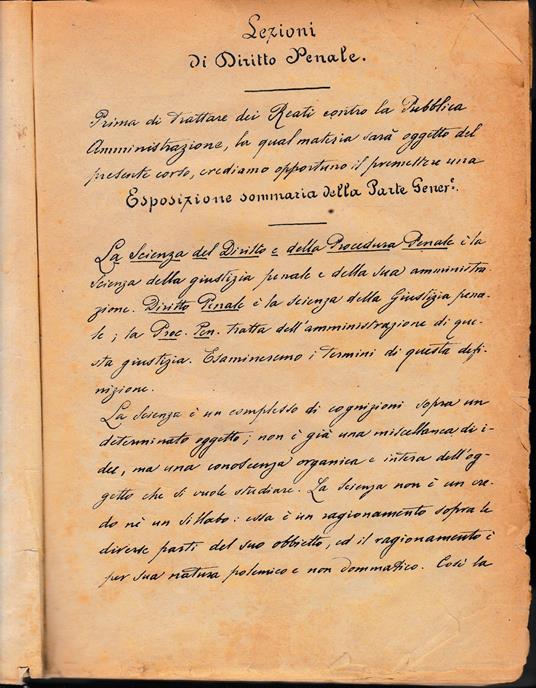 Lezioni
di Diritto Penale.
Prima di trattare dei Reati contro la Pubblica
Amministrazione, la qual materia sarà oggetto del
presente corso, crediamo opportuno il premettere una
Esposizione sommaria della Parte Gener.e
La Scienza del Diritto e della Procedura Penale è la
scienza della giustizia penale e della sua amministra-
zione. Diritto Penale è la scienza della Giustizia pena-
le; la Proc. Pen. tratta dell'amministrazione di que-
sta giustizia. Esamineremo i termini di questa defi-
nizione.
La Scienza è un complesso di cognizioni sopra un
determinato oggetto; non è già una miscellanea di i-
dee, ma una conoscenza organica e intera dell'og-
getto che si vuole studiare. La scienza non è un cre-
do nè un Sillabo: essa è un ragionamento sopra le
diverse parti del suo obbietto, ed il ragionamento è
per sua natura polemico e non dommatico. Così la